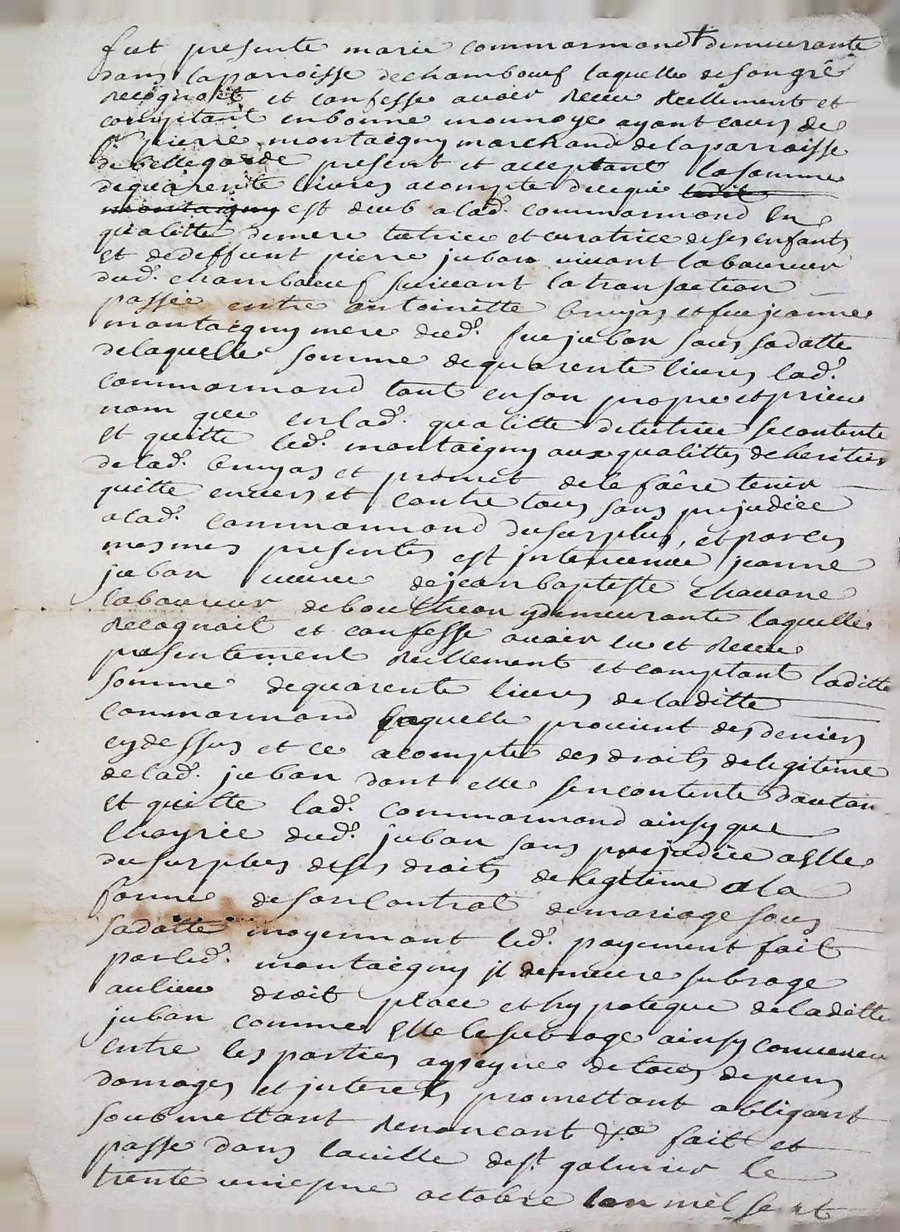 fut presente marie commarmond + demeurante
dans laparroisse dechambœuf laquelle desongré
recognoit et confesse avoir receu reellement et
comptant enbonne monnoye ayant cours de
sr. pierre montaigny marchand delaparroisse
debellegarde present et acceptant lasomme
dequarente livres acompte decequi ledit
montaigny est deub alad. commarmond en
qualitté demere tutrice et curatrice deses enfants
et dedeffunt pierre juban vivant laboureur
dud. chambœuf suivant latransaction
passée entre antoinette bruyas et feue jeanne
montaigny mere dud. feu juban sous sadatte
delaquelle somme dequarente livres lad.
commarmond tant enson propre et privé
nom que enlad. qualitté detutrice secontente
et quitte led. montaigny aux qualittés deheritier
delad. bruyas et promet dele faire tenir
quitte envers et contre tous sans prejudice
alad. commarmond dusurplus, et parces
mesmes presentes est intervenue jeanne
juban veuve de jean baptiste chavane
laboureur deboutheon y demeurante laquelle
recognoit et confesse avoir eu et receu
presentement reellement et comptant laditte
somme dequarente livres deladitte
commarmond laquelle provient des deniers
cydessus et ce acompte des droits delegitime
delad. juban dont elle sencontente dautan
et quitte lad. commarmond ainsy que
lhoyrie dud. juban sans prejudice aelle
dusurplus deses droits delegitime ala
forme desoncontrat demariage sous
sadatte moyennant led. payement fait
parled. montaigny il demeure subrogé
aulieu droit place et hypoteque deladitte
juban comme elle lesubroge ainsy convenu
entre les parties apeyne detous depens
domages et interets promettant obligeant
soubmettant renoncant &a fait et
passé dans laville dest. galmier le
trente unieme octobre lon mil sept